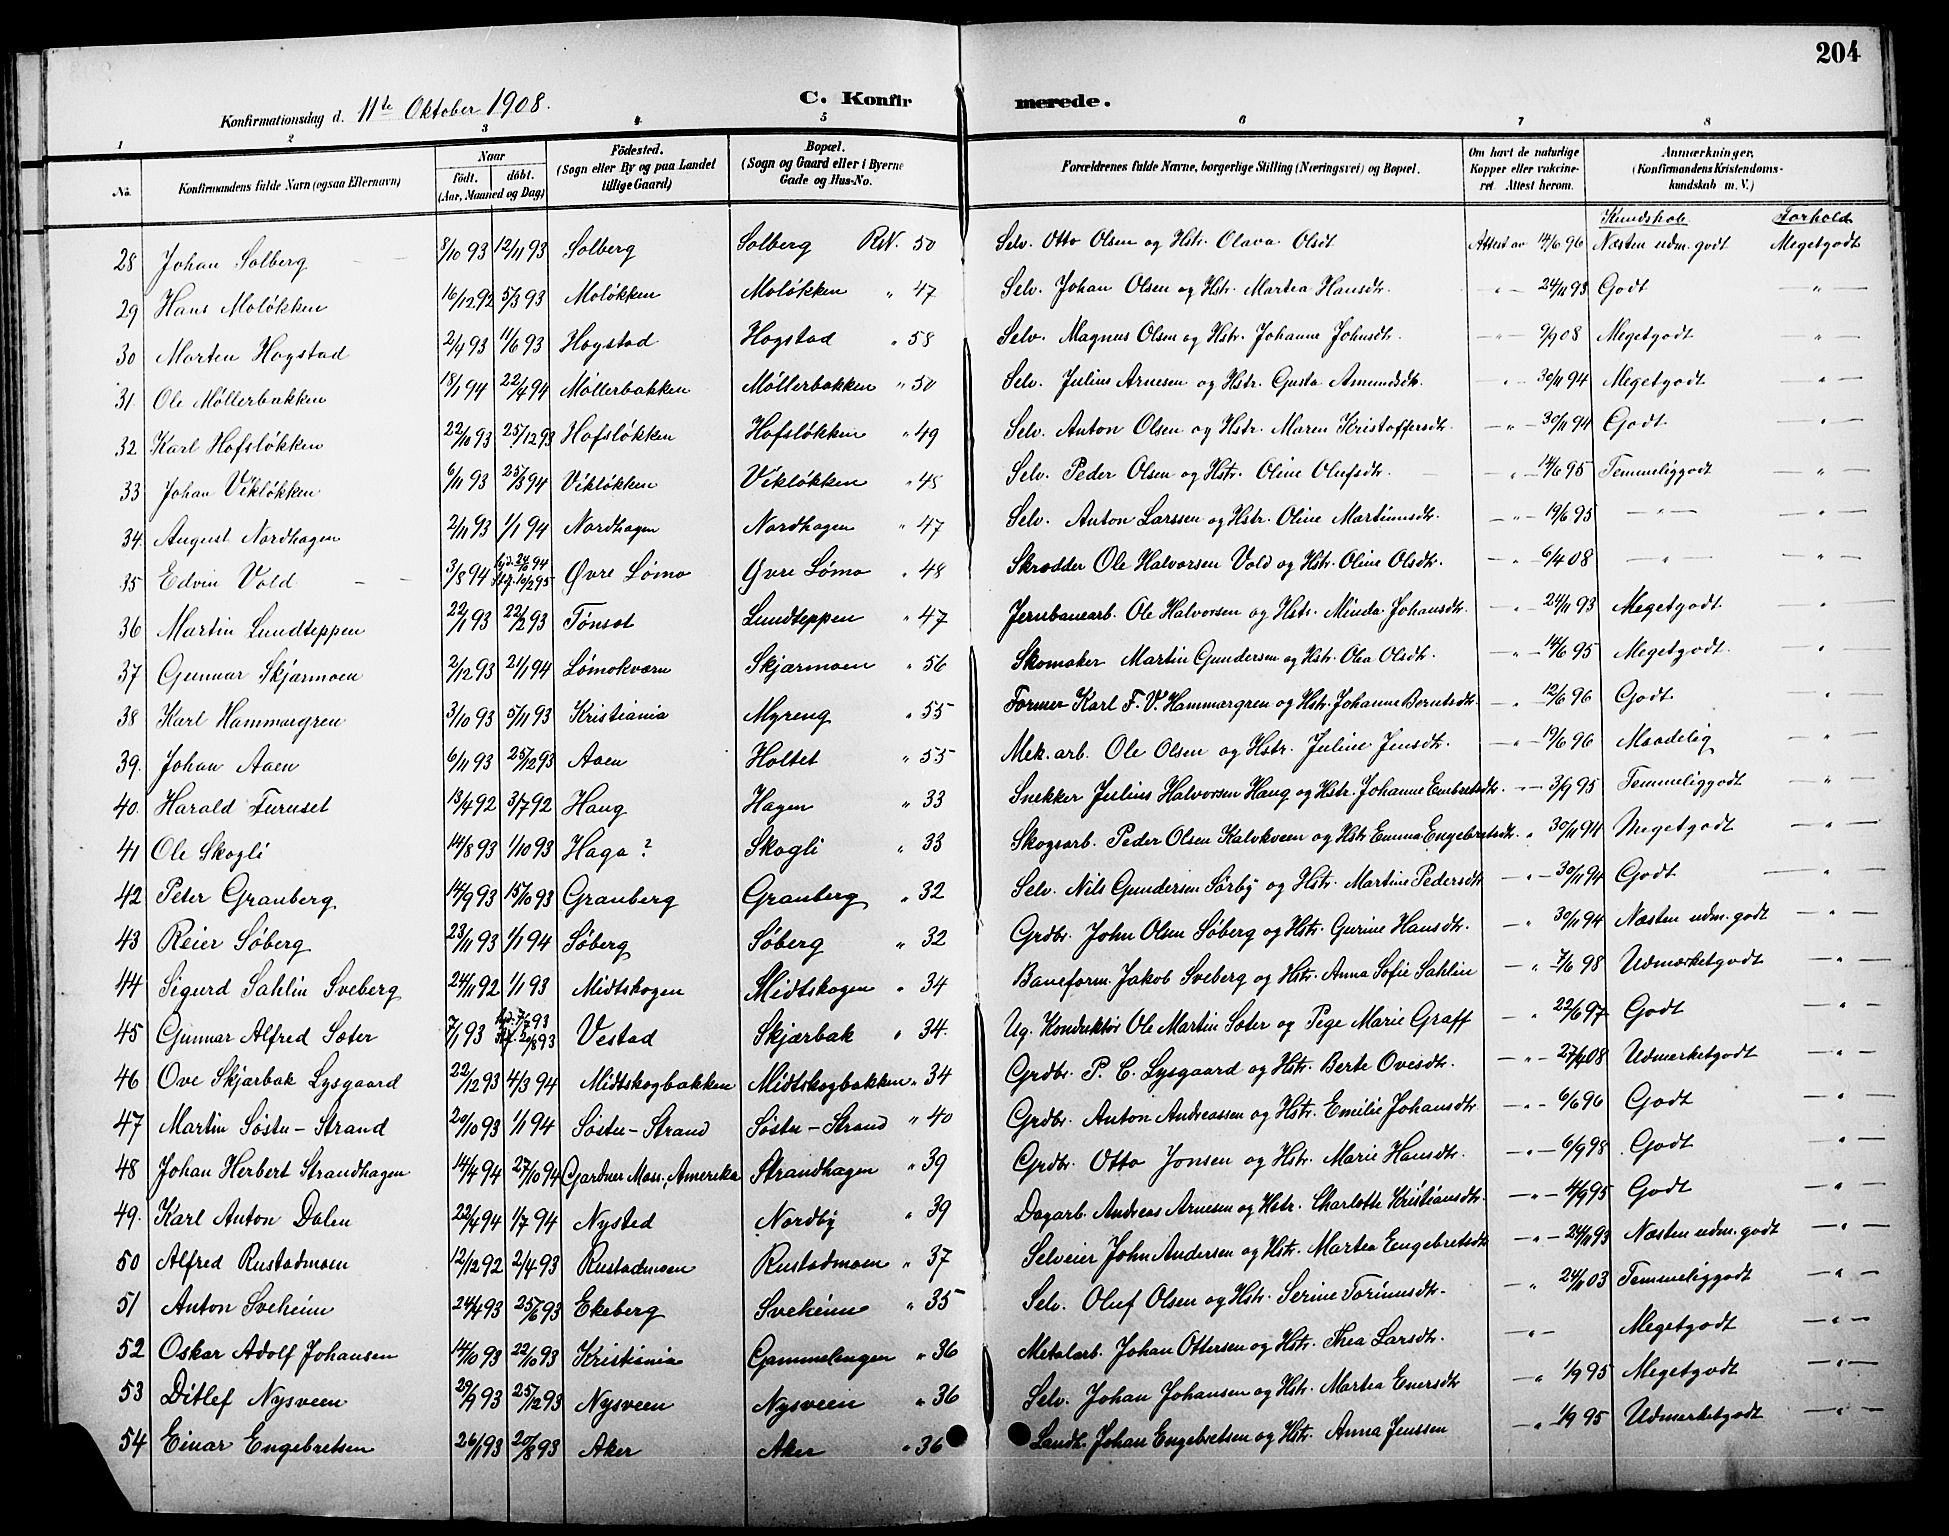 204
Konfirmationsdag d. 11te Oktober 1908.
C. Konfirmerede.
1 2 3 4 5 6 7 8
No. Konfirmandens fulde Navn (ogsaa Efternavn) Naar födt. döbt. (Aar, Maaned og Dag) Födested. (Sogn eller By og paa Landet tillige Gaard) Bopæl. (Sogn og Gaard eller i Byerne Gade og Hus-No. Forældrenes fulde Navne, borgerlige Stilling (Næringsvei) og Bopæl. Om havt de naturlige Kopper eller vakcineret. Attest herom. Anmærkninger. (Konfirmandens Kristendomskundskab m. V.)
Kundskab Forhold
28 Johan Solberg 8/10 93 12/11 93 Solberg Solberg RN. 50 Selv. Otto Olsen og Hstr. Olava Olsdt Attest av 14/6 96 Næsten udm. godt Megetgodt
29 Hans Moløkken 16/12 92 5/3 93 Moløkken Moløkken " 47 Selv. Johan Olsen og Hstr. Martea Hansdtr. " — 24/11 93 Godt — " —
30 Morten Hogstad 2/4 93 11/6 93 Hogstad Hogstad " 58 Selv. Magnus Olsen og Hstr. Johanne Johnsdtr. — " — 9/9 08 Megetgodt — " —
31 Ole Møllerbakken 18/1 94 22/4 94 Møllerbakken Møllerbakken " 50 Selv. Julius Arnesen og Hstr. Gusta Amundsdtr. " — 30/11 94 Megetgodt — " —
32 Karl Hofsløkken 22/10 93 25/12 93 Hofsløkken Hofsløkken " 49 Selv. Anton Olsen og Hstr. Maren Kristoffersdtr. — " — 30/11 94 Godt — " —
33 Johan Vikløkken 6/11 93 25/3 94 Vikløkken Vikløkken " 48 Selv. Peder Olsen og Hstr. Oline Olufsdtr. — " — 14/6 95 Temmeliggodt — " —
34 August Nordhagen 2/11 93 1/1 94 Nordhagen Nordhagen " 47 Selv. Anton Larssen og Hstr. Oline Martinusdtr. — " — 19/6 95 — " — — " —
35 Edvin Vold 3/8 94 Øvre Lømo Øvre Lømo " 48 Skrædder Ole Halvorsen Vold og Hstr. Oline Olsdtr. — " — 6/4 08 — " — — " —
36 Martin Lundteppen 22/1 93 22/2 93 Tønset Lundteppen " 47 Jernbanearb. Ole Halvorsen og Hstr. Minda Johansdtr. " — 24/11 93 Megetgodt. — " —
37 Gunnar Skjærmoen 2/12 93 21/1 94 Lømokværn Skjærmoen " 56 Skomaker Martin Gundersen og Hstr. Olea Olsdtr. — " — 14/6 95 Megetgodt. — " —
38 Karl Hammargren 3/10 93 5/11 93 Kristiania Myreng " 55 Former Karl F. V. Hammargren og Hstr. Johanne Berntsdtr. — " — 12/6 96 Godt — " —
39. Johan Aaen 6/11 93 25/12 93 Aaen Holtet " 55 Mek. arb. Ole Olsen og Hstr. Juline Jensdtr. — " — 19/6 96 Maadelig — " —
40. Harald Furuset 13/4 92 3/7 92 Haug Hagen " 33 Snekker Julius Halvorsen Haug og Hstr. Johanne Embretsdtr. — " — 3/9 95 Temmeliggodt — " —
41 Ole Skogli 14/8 93 1/10 93 Haga ? Skogli " 33 Skogsarb. Peder Olsen Kalvkveen og Hstr Emma Engebretsdtr. " 30/11 94 Megetgodt — " —
42 Peter Granberg 14/9 93 15/10 93 Granberg Granberg " 32 Selv. Nils Gundersen Sørby og Hstr. Martine Pedersdtr " — 30/11 94 Godt — " —
43 Reier Søberg 23/11 93 1/1 94 Søberg Søberg " 32 Grdbr. John Olsen Søberg og Hstr. Gurine Hansdtr. " 30/11 94 Næsten udm. godt — " —
44 Sigurd Sahlin Sveberg 24/11 92 1/1 93 Midtskogen Midtskogen " 34 Baneform. Jakob Sveberg og Hstr. Anna Sofie Sahlin " — 7/6 98 Udmerketgodt — " —
45 Gunnar Alfred Sæter 7/1 93 Vestad Skjærbæk " 34. Ug. Konduktør Ole Martin Sæter og Pige Marie Graff " 22/6 97 Godt — " —
46 Ove Skjærbæk Lysgaard 22/12 93 4/3 94 Midtskogbakken Midtskogbakken " 34 Grdbr. P. C. Lysgaard og Hstr. Berte Ovesdtr. — " — 27/9 08 Udmerketgodt — " —
47 Martin Søstu-Strand 20/10 93 1/1 94 Søstu-Strand Søstu-Strand " 40 Grdbr. Anton Andreassen og Hstr. Emilie Johansdtr — " — 6/6 96 Godt — " —
48 Johan Herbert Strandhagen 14/4 94 27/10 94 Gardner Mass. Amerika Strandhagen " 39 Grdbr. Otto Jonsen og Hstr. Marie Hansdtr. — " — 6/9 98 Godt — " —
49. Karl Anton Dalen 22/4 94 1/7 94 Nysted Nordby " 39 Dagarb. Andreas Arnesen og Hstr. Charlotte Kristiansdtr. — " — 4/9 95 Godt — " —
50 Alfred Rustadmoen 12/12 92 2/4 93 Rustadmoen Rustadmoen " 37 Selveier John Andersen og Hstr. Martea Engebretsdtr — " — 24/11 93 Næsten udm. godt — " —
51 Anton Sveheim 24/4 93 25/6 93 Ekeberg Sveheim " 35 Selv. Oluf Olsen og Hstr. Serine Torinusdtr. " 24/11 03 Temmeliggodt — " —
52 Oskar Adolf Johansen 14/10 93 22/10 93 Kristiania Gammelengen " 36 Metalarb. Johan Ottersen og Hstr. Thea Larsdtr. — " — Megetgodt — " —
53 Ditlef Nysveen 29/9 93 25/12 93 Nysveen Nysveen " 36 Selv. Johan Johansen og Hstr. Martea Enersdtr " — 1/9 95 Megetgodt — " —
54 Einar Engebretsen 26/1 93 20/8 93 Aker Aker " 36 Landh. Johan Engebretsen og Hstr. Anna Jenssen — " — 1/9 95 Udmerketgodt — " —